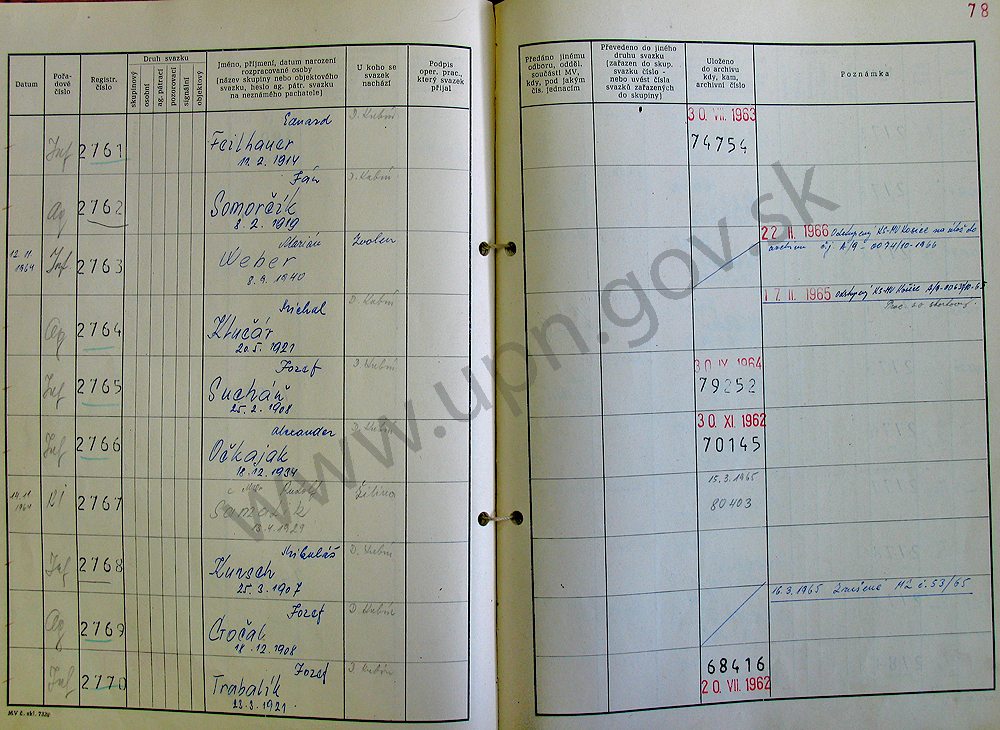 78
Datum
Pořadové číslo
Registr. číslo
Druh svazku
skupinový
osobní
ag. pátrací
pozorovací
signální
objektový
Jméno, příjmení, datum narození
rozpracované osoby
(název skupiny nebo objektového
svazku, heslo ag. pátr. svazku
na neznámého pachatele)
U koho se
svazek
nachází
Podpis
oper. prac.,
který svazek
přijal
Předáno jinému
odboru, odděl.
součásti MV,
kdy, pod jakým
čís. jednacím
Převedeno do jiného
druhu svazku
(zařazen do skup.
svazku číslo -
nebo uvést čísla
svazků zařazených
do skupiny)
Uloženo
do archivu
kdy, kam,
archivní číslo
Poznámka
Inf 2761 Eduard D. Kubín 30. VII. 1963
Feilhauer 74754
12. 2. 1914
Ag 2762 Ján D. Kubín
Somorčík
8. 2. 1919
12. 11. 1964 Inf 2763 Marián Zvolen 22 II. 1966 Odstúpený KS-MV Košice
Weber archivu čj. A/9 - 0074/10-1966
8. 9. 1940
Ag 2764 Michal D. Kubín 17. II. 1965
Klučár
20. 5. 1921
Inf 2765 Jozef D. Kubín 30 IX 1964
Sucháň 79252
25. 2. 1908
Inf 2766 Alexander D. Kubín 30 XI. 1962
Očkajak 70145
18. 12. 1934
14. 11 2767 Rudolf Žilina 15. 3. 1965
80403
13. 4. 1929
Inf 2768 Mikuláš D. Kubín
Kunsch
25. 3. 1907
Ag 2769 Jozef D. Kubín 16. 3. 1965 Zničené MZ č. 53/65
18. 12. 1908
Inf 2770 Jozef D. Kubín 68416
Trabalík 20. VII. 1962
23. 3. 1921
www.upn.gov.sk